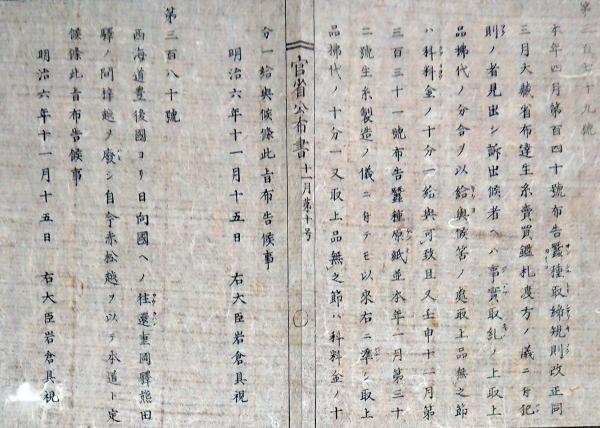 第三百七十九號
本年四月第百四十號布告蠶種取締規則改正同
三月大藏省布達生糸賣買鑑札渡方ノ儀ニ付犯
則ノ者見出シ訴出候者ヘハ事實取糺ノ上取上
品拂代ノ分合ヲ以給與候筈ノ處取上品無之節
ハ科料金ノ十分一給與可致且又壬申十一月第
三百三十一號布告蠶種原紙並本年一月第三十
二號生糸製造ノ儀ニ付テモ以來右ニ準シ取上
品拂代ノ十分一又取上品無之節ハ科料金ノ十
官省公布書 十一月第十号
分一給與候條此旨布告候事
明治六年十一月十五日 右大臣岩倉具視
第三百八十號
西海道豊後國ヨリ日向國ヘノ往還重岡驛熊田
驛ノ間梓越ヲ廢シ自今赤松越ヲ以テ本道ト定
候條此旨布告候事
明治六年十一月十五日 右大臣岩倉具視